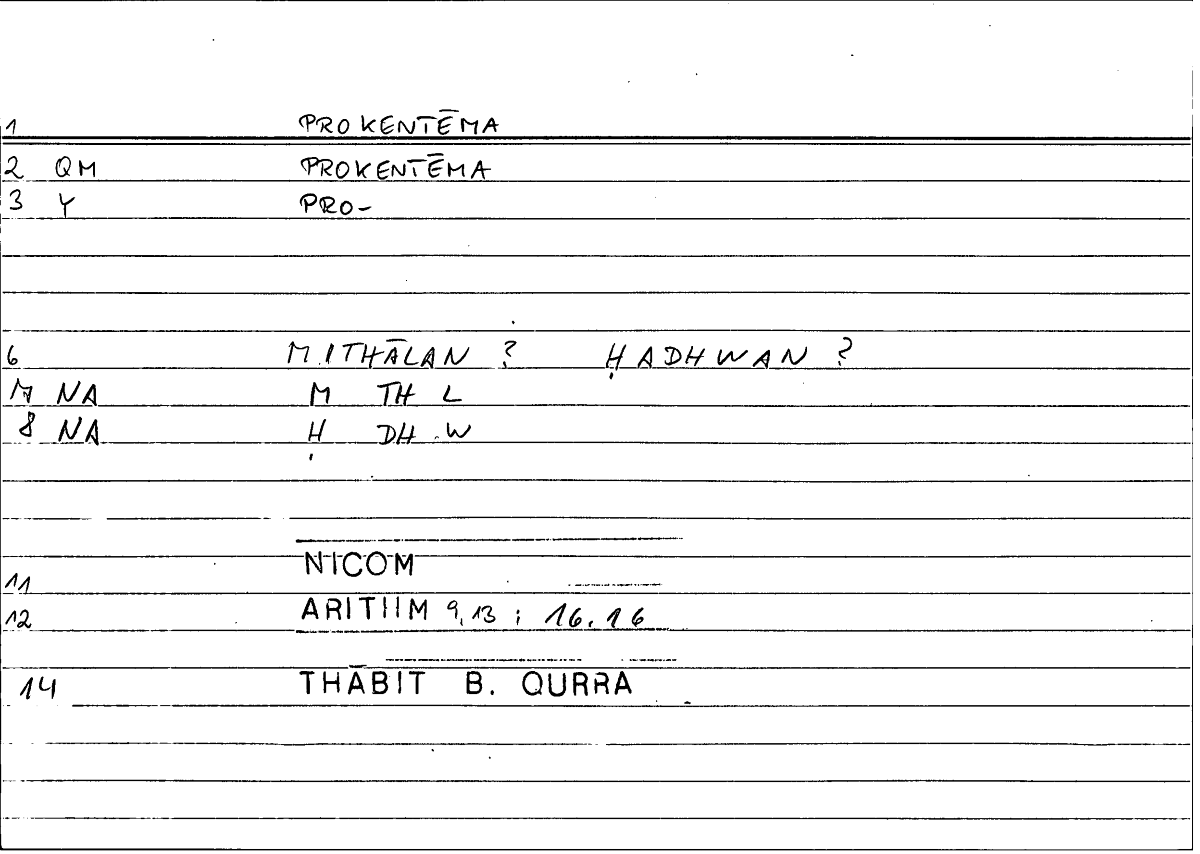 1 PROKENTĒMA
2 QM PROKENTĒMA
3 Y PRO-
6 MITHĀLAN ? ḤADHWAN ?
7 NA M TH L
8 NA Ḥ DH W
NICOM
11
12 ARITIIM 9,13 ; 16.16
14 THĀBIT B. QURRA